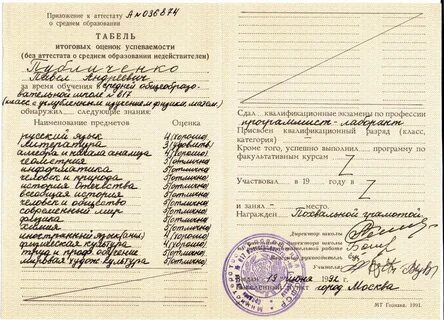 Приложение к аттестату
о среднем образовании
А № 036874
ТАБЕЛЬ
итоговых оценок успеваемости
(без аттестата о среднем образовании недействителен)
Публиченко
Павел Андреевич
за время обучения в средней общеобразо-
вательной школе № 814
(класс с углубленным изучением физики, матем.)
обнаружил следующие знания:
Наименование предметов Оценка
русский язык 4 (хорошо)
литература 3 (удовлетв)
алгебра и начала анализа 4 (хорошо)
геометрия 5 (отлично)
информатика 5 (отлично)
человек и природа 5 (отлично)
история Отечества 5 (отлично)
всеобщая история 5 (отлично)
человек и общество 5 (отлично)
современный мир 5 (отлично)
физика 5 (отлично)
химия 5 (отлично)
иностранный язык (англ) 4 (хорошо)
физическая культура 4 (хорошо)
труд и проф. обучение 5 (отлично)
мировая худож. культура 5 (отлично)
Сдал квалификационные экзамены по профессии
программист-лаборант
Присвоен квалификационный разряд (класс,
категория)
Кроме того, успешно выполнил программу по
факультативным курсам Z
Участвовал в 19 году в Z
и занял место.
Награжден Похвальной грамотой
Директор школы
13 июня 1992 г.
город Москва
МТ Гознака. 1991.